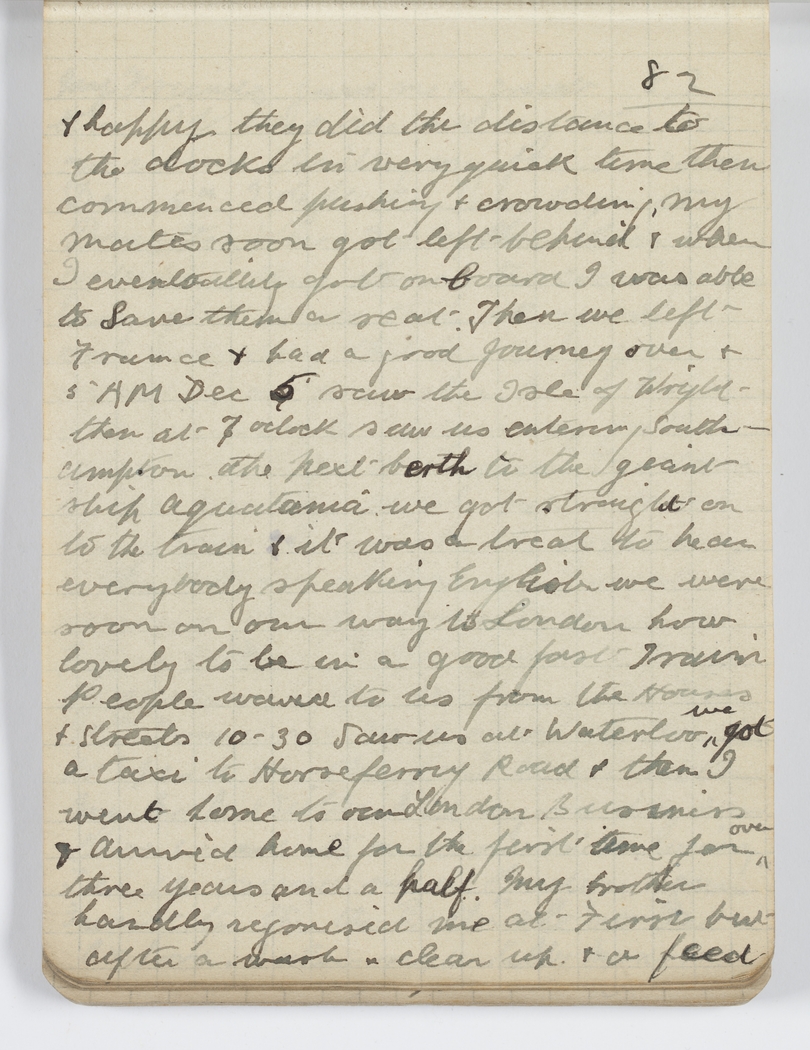 82
& happy they did the distance to
the docks in very quick time then
commenced pushing & crowding, my
mates soon got left behind & when
I eventually got on board I was able
to save them a seat. Then we left
France & had a good journey over &
5 AM Dec 5 saw the Isle of Wright
then at 7 oclock saw us entering South-
ampton the next berth to the geant
ship Aquatania we got straight on
to the train & it was a treat to hear
everybody speaking English we were
soon on our way to London how
lovely to be in a good fast Train
People waved to us from the Houses
& Streets 10-30 Saw us at Waterloo, we got
a taxi to Horseferry Road & then I
went home to our London Business
& arrived home for the first time for over
three years and a half. My brother
hardly regonised me at First but
after a wash & clean up. & a feed